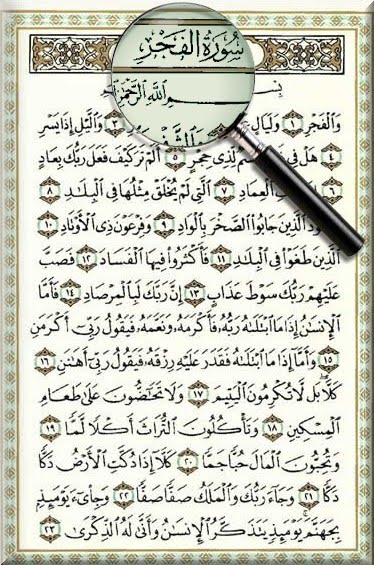 سُورَةُ الفَجْرِ
اللَّهِ الرَّحْمَٰنِ
وَالْفَجْرِ ١ وَلَيَالٍ ٣ وَالَّيْلِ إِذَا يَسْرِ
٤ هَلْ فِي لِّذِي حِجْرٍ ٥ أَلَمْ تَرَ كَيْفَ فَعَلَ رَبُّكَ بِعَادٍ
٦ الْعِمَادِ ٧ الَّتِي لَمْ يُخْلَقْ مِثْلُهَا فِي الْبِلَٰدِ ٨
الَّذِينَ جَابُوا الصَّخْرَ بِالْوَادِ ٩ وَفِرْعَوْنَ ذِي الْأَوْتَادِ ١٠
الَّذِينَ طَغَوْا فِي الْبِلَٰدِ ١١ فَأَكْثَرُوا فِيهَا الْفَسَادَ ١٢ فَصَبَّ
عَلَيْهِمْ رَبُّكَ سَوْطَ عَذَابٍ ١٣ إِنَّ رَبَّكَ لَبِالْمِرْصَادِ ١٤ فَأَمَّا
الْإِنسَٰنُ إِذَا مَا ابْتَلَىٰهُ رَبُّهُ فَأَكْرَمَهُ وَنَعَّمَهُ فَيَقُولُ رَبِّي أَكْرَمَنِ
١٥ وَأَمَّا إِذَا مَا ابْتَلَىٰهُ فَقَدَرَ عَلَيْهِ رِزْقَهُ فَيَقُولُ رَبِّي أَهَٰنَنِ ١٦
كَلَّا بَل لَّا تُكْرِمُونَ الْيَتِيمَ ١٧ وَلَا تَحَٰضُّونَ عَلَىٰ طَعَامِ
الْمِسْكِينِ ١٨ وَتَأْكُلُونَ التُّرَاثَ أَكْلًا لَّمًّا ١٩
وَتُحِبُّونَ الْمَالَ حُبًّا جَمًّا ٢٠ كَلَّا إِذَا دُكَّتِ الْأَرْضُ دَكًّا
دَكًّا ٢١ وَجَاءَ رَبُّكَ وَالْمَلَكُ صَفًّا صَفًّا ٢٢ وَجِايءَ يَوْمَئِذٍ
بِجَهَنَّمَ يَوْمَئِذٍ يَتَذَكَّرُ الْإِنسَٰنُ وَأَنَّىٰ لَهُ الذِّكْرَىٰ ٢٣